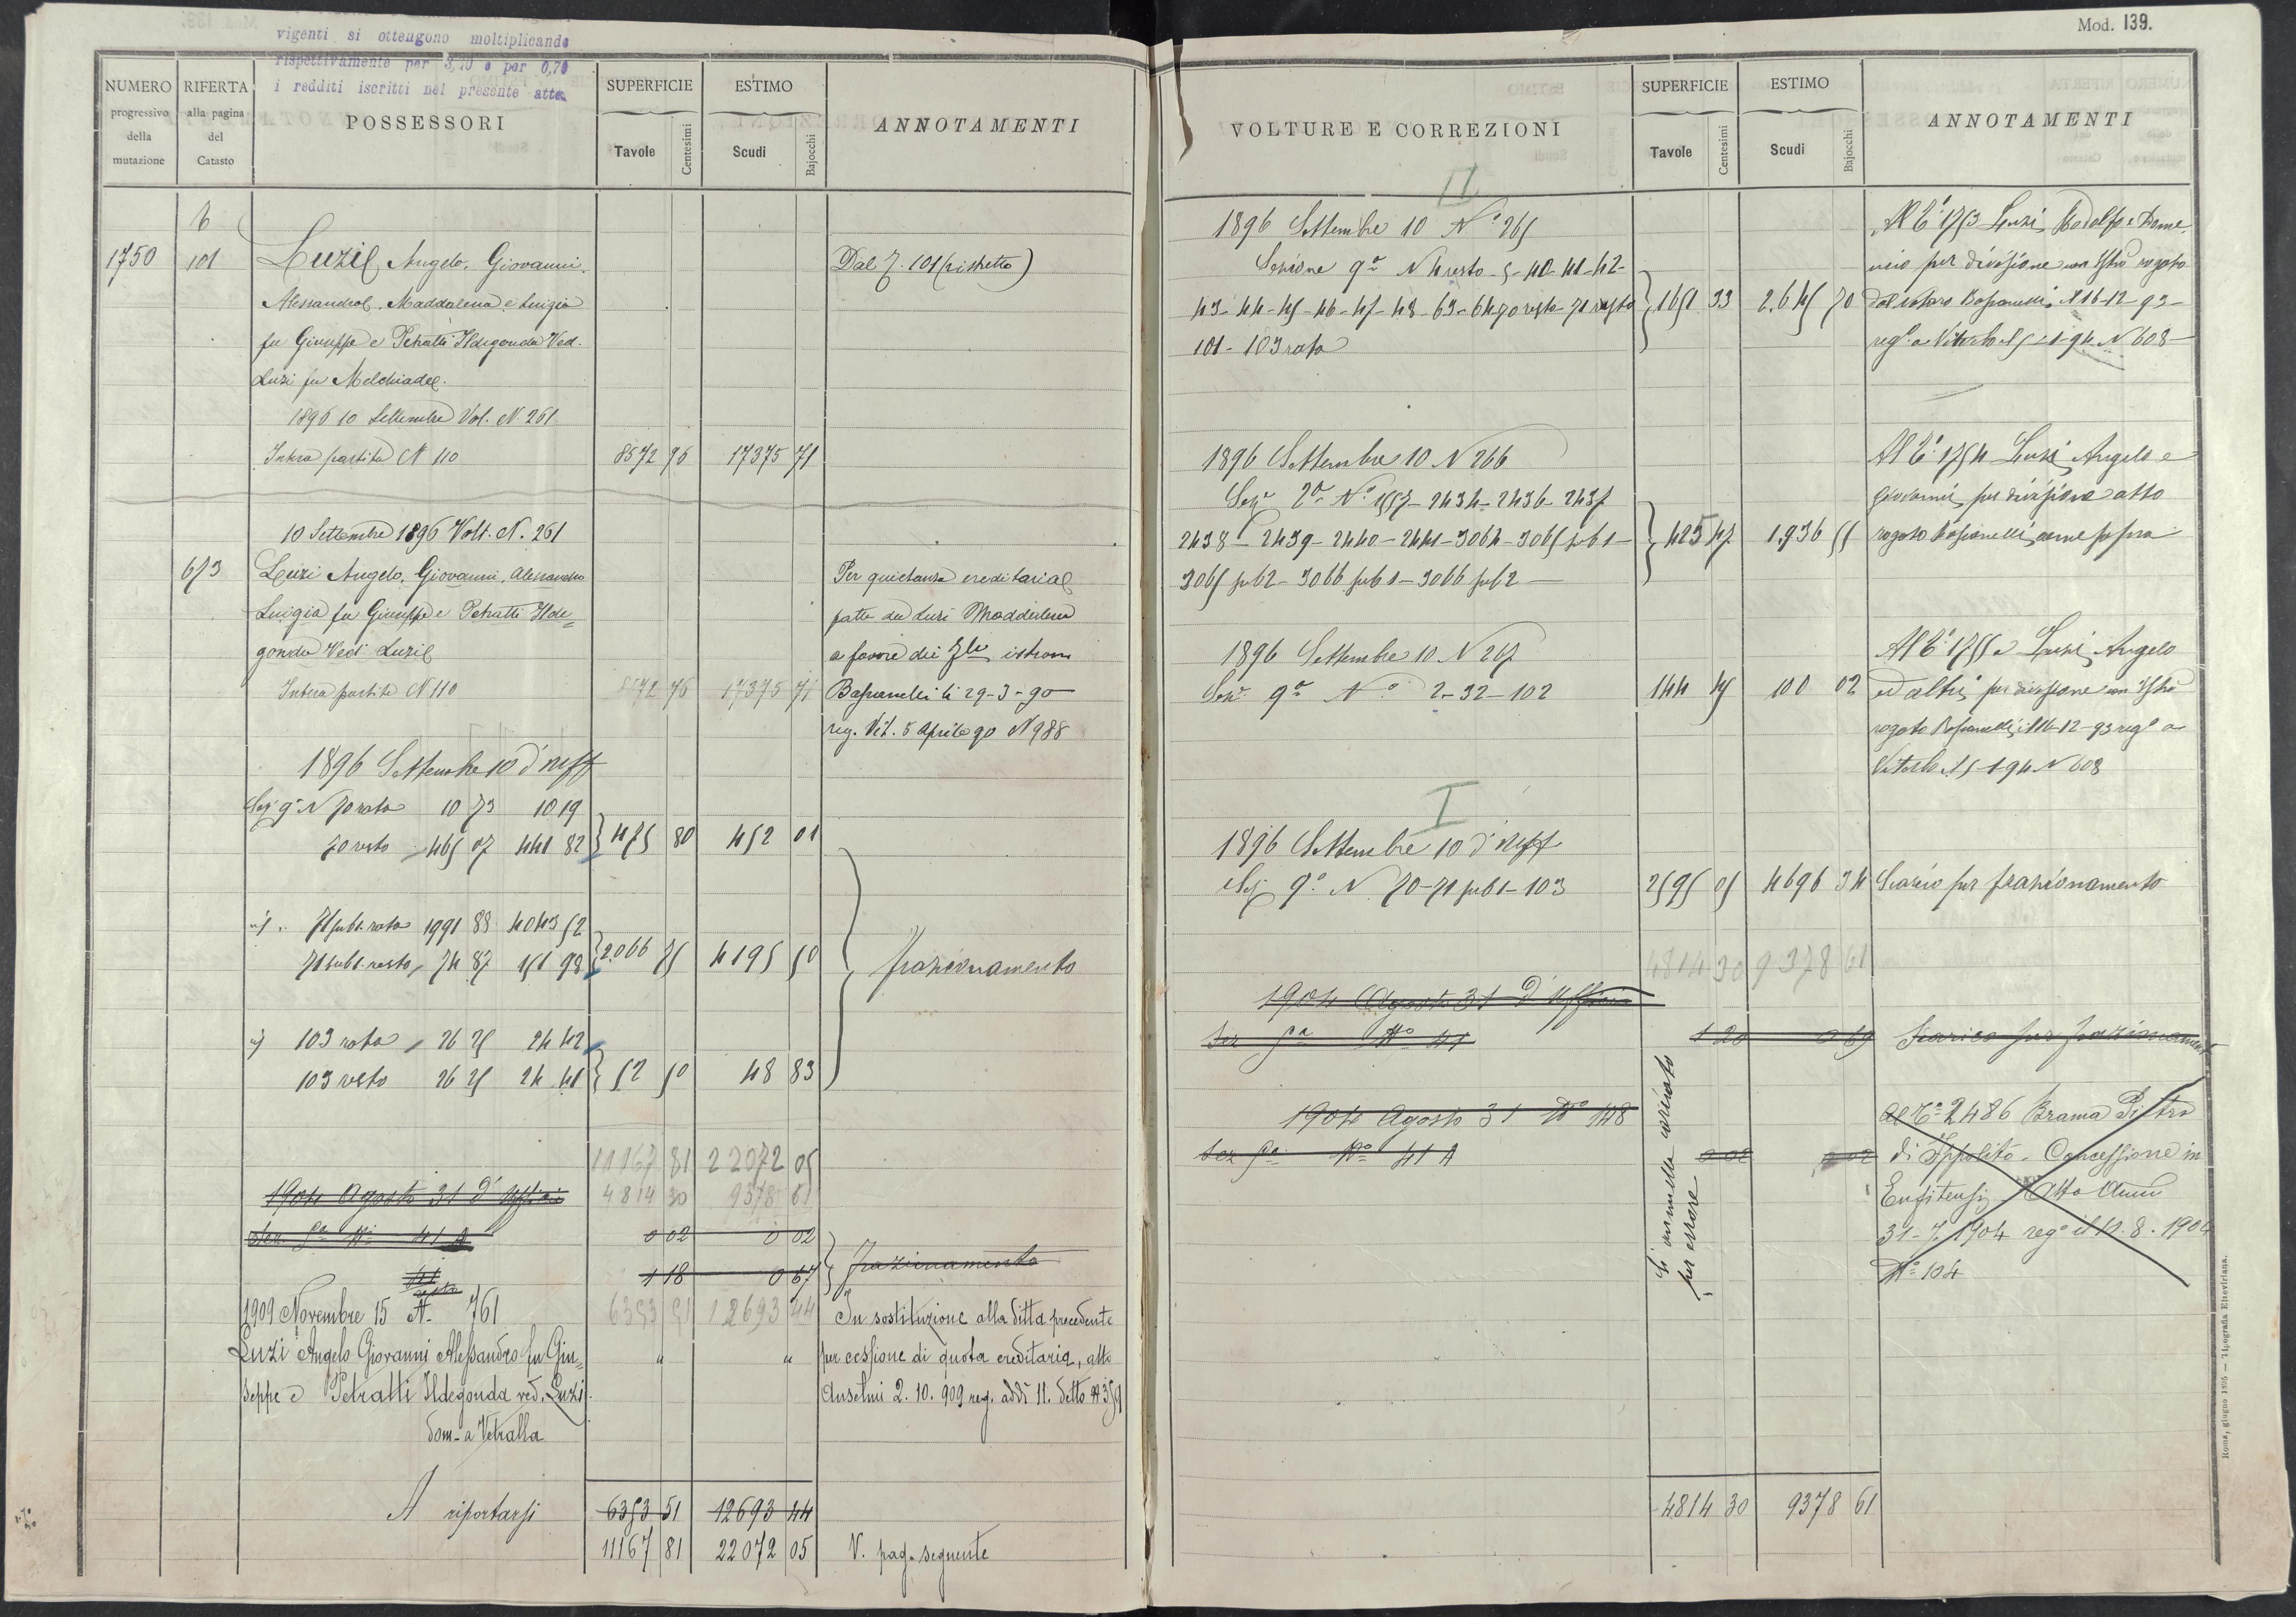 Mod. 139.
vigenti si ottengono moltiplicando
rispettivamente per 3,10 e per 0,70
i redditi iscritti nel presente atto.
NUMERO progressivo della mutazione
RIFERTA alla pagina del Catasto
POSSESSORI
SUPERFICIE
Tavole Centesimi
ESTIMO
Scudi Bajocchi
ANNOTAMENTI
6
1750 101 Luzi Angelo, Giovanni, Dal 7. 101 (ristretto)
Alessandro, Maddalena e Luigia
fu Giuseppe e Petratti Ildegonda Ved.
Luzi fu Melchiade.
1896 10 Settembre Vol. N. 261
Intera partita N 110 8572 76 17375 71
10 Settembre 1896 Volt. N. 261
673 Luzi Angelo, Giovanni, Alessandro Per quietanza ereditaria
Luigia fu Giuseppe e Petratti Ilde= fatta da Luzi Maddalena
gonda Ved. Luzi a favore dei istrom
Intera partita N 110 8572 76 17375 71 li 29-3-90
reg. Vit. 5 Aprile 90 N 988
1896 Settembre 10 d'Uff
Sez 9ª N 70 rata 10 73 10 19
70 resto 465 07 441 82 475 80 452 01
71 sub 1 rata 1991 88 4043 52
71 sub 1 resto 74 87 151 98 2066 75 4195 50 frazionamento
103 rata 26 25 24 42
103 resto 26 25 24 41 52 50 48 83
11167 81 22072 05
1904 Agosto 31 d'Ufficio 4814 30 9378 61
Sez Nº 41 A 0 02 0 02
41 resto 1 18 0 67 frazionamento
1909 Novembre 15 N. 761 6353 51 12693 44 In sostituzione alla ditta precedente
Luzi Angelo Giovanni Alessandro fu Giu= " " per cessione di quota ereditaria, atto
seppe e Petratti Ildegonda ved. Luzi Anselmi 2. 10. 909 reg. addì 11. detto N 359
dom. a Vetralla
A riportarsi 6353 51 12693 44
11167 81 22072 05 V. pag. seguente
VOLTURE E CORREZIONI
SUPERFICIE
Tavole Centesimi
ESTIMO
Scudi Bajocchi
ANNOTAMENTI
II
1896 Settembre 10 Nº 265 Al Tº 1753 Luzi Rodolfo e Dome
Sezione 9ª N 4 resto - 5 - 40 - 41 - 42 - nico per divisione con Istrº rogato
43 - 44 - 45 - 46 - 47 - 48 - 63 - 64 70 resto - 71 resto 1651 33 2645 70 dal notaro il 16-12-93
101 - 103 rata regº a Viterbo il 5-1-94 N 608
1896 Settembre 10 N 266 Al Tº 1754 Luzi Angelo e
Sezº 2ª Nº 1557 - 2434 - 2436 - 2437 Giovanni per divisione atto
2438 - 2439 - 2440 - 2441 - 3064 - 3065 sub 1 - 423 47 1936 55 rogato come sopra
3065 sub 2 - 3066 sub 1 - 3066 sub 2
1896 Settembre 10 N 267 Al Tº 1755 a Luzi Angelo
Sezº 9ª Nº 2 - 32 - 102 144 45 100 02 ed altri per divisione con Istrº
rogato il 16-12-93 regº a
Viterbo il 5-1-94 N 608
I
1896 Settembre 10 d'Uff
Sez 9ª N 70 - 71 sub 1 - 103 2595 05 4696 34 Scarico per frazionamento
4814 30 9378 61
1904 Agosto 31 d'Ufficio
Sez Nº 41 1 20 0 69 Scarico per frazionamento
1904 Agosto 31 Nº 148 Al Tº 2486 Brama Pietro
Sez Nº 41 A 0 02 0 02 di Ippolito - Concessione in
Enfiteusi - Atto
31 - 7. 1904 regº il 12. 8. 1904
Nº 104
Si annulla caricato
per errore
4814 30 9378 61
Roma, giugno 1895 — Tipografia Elzeviriana.